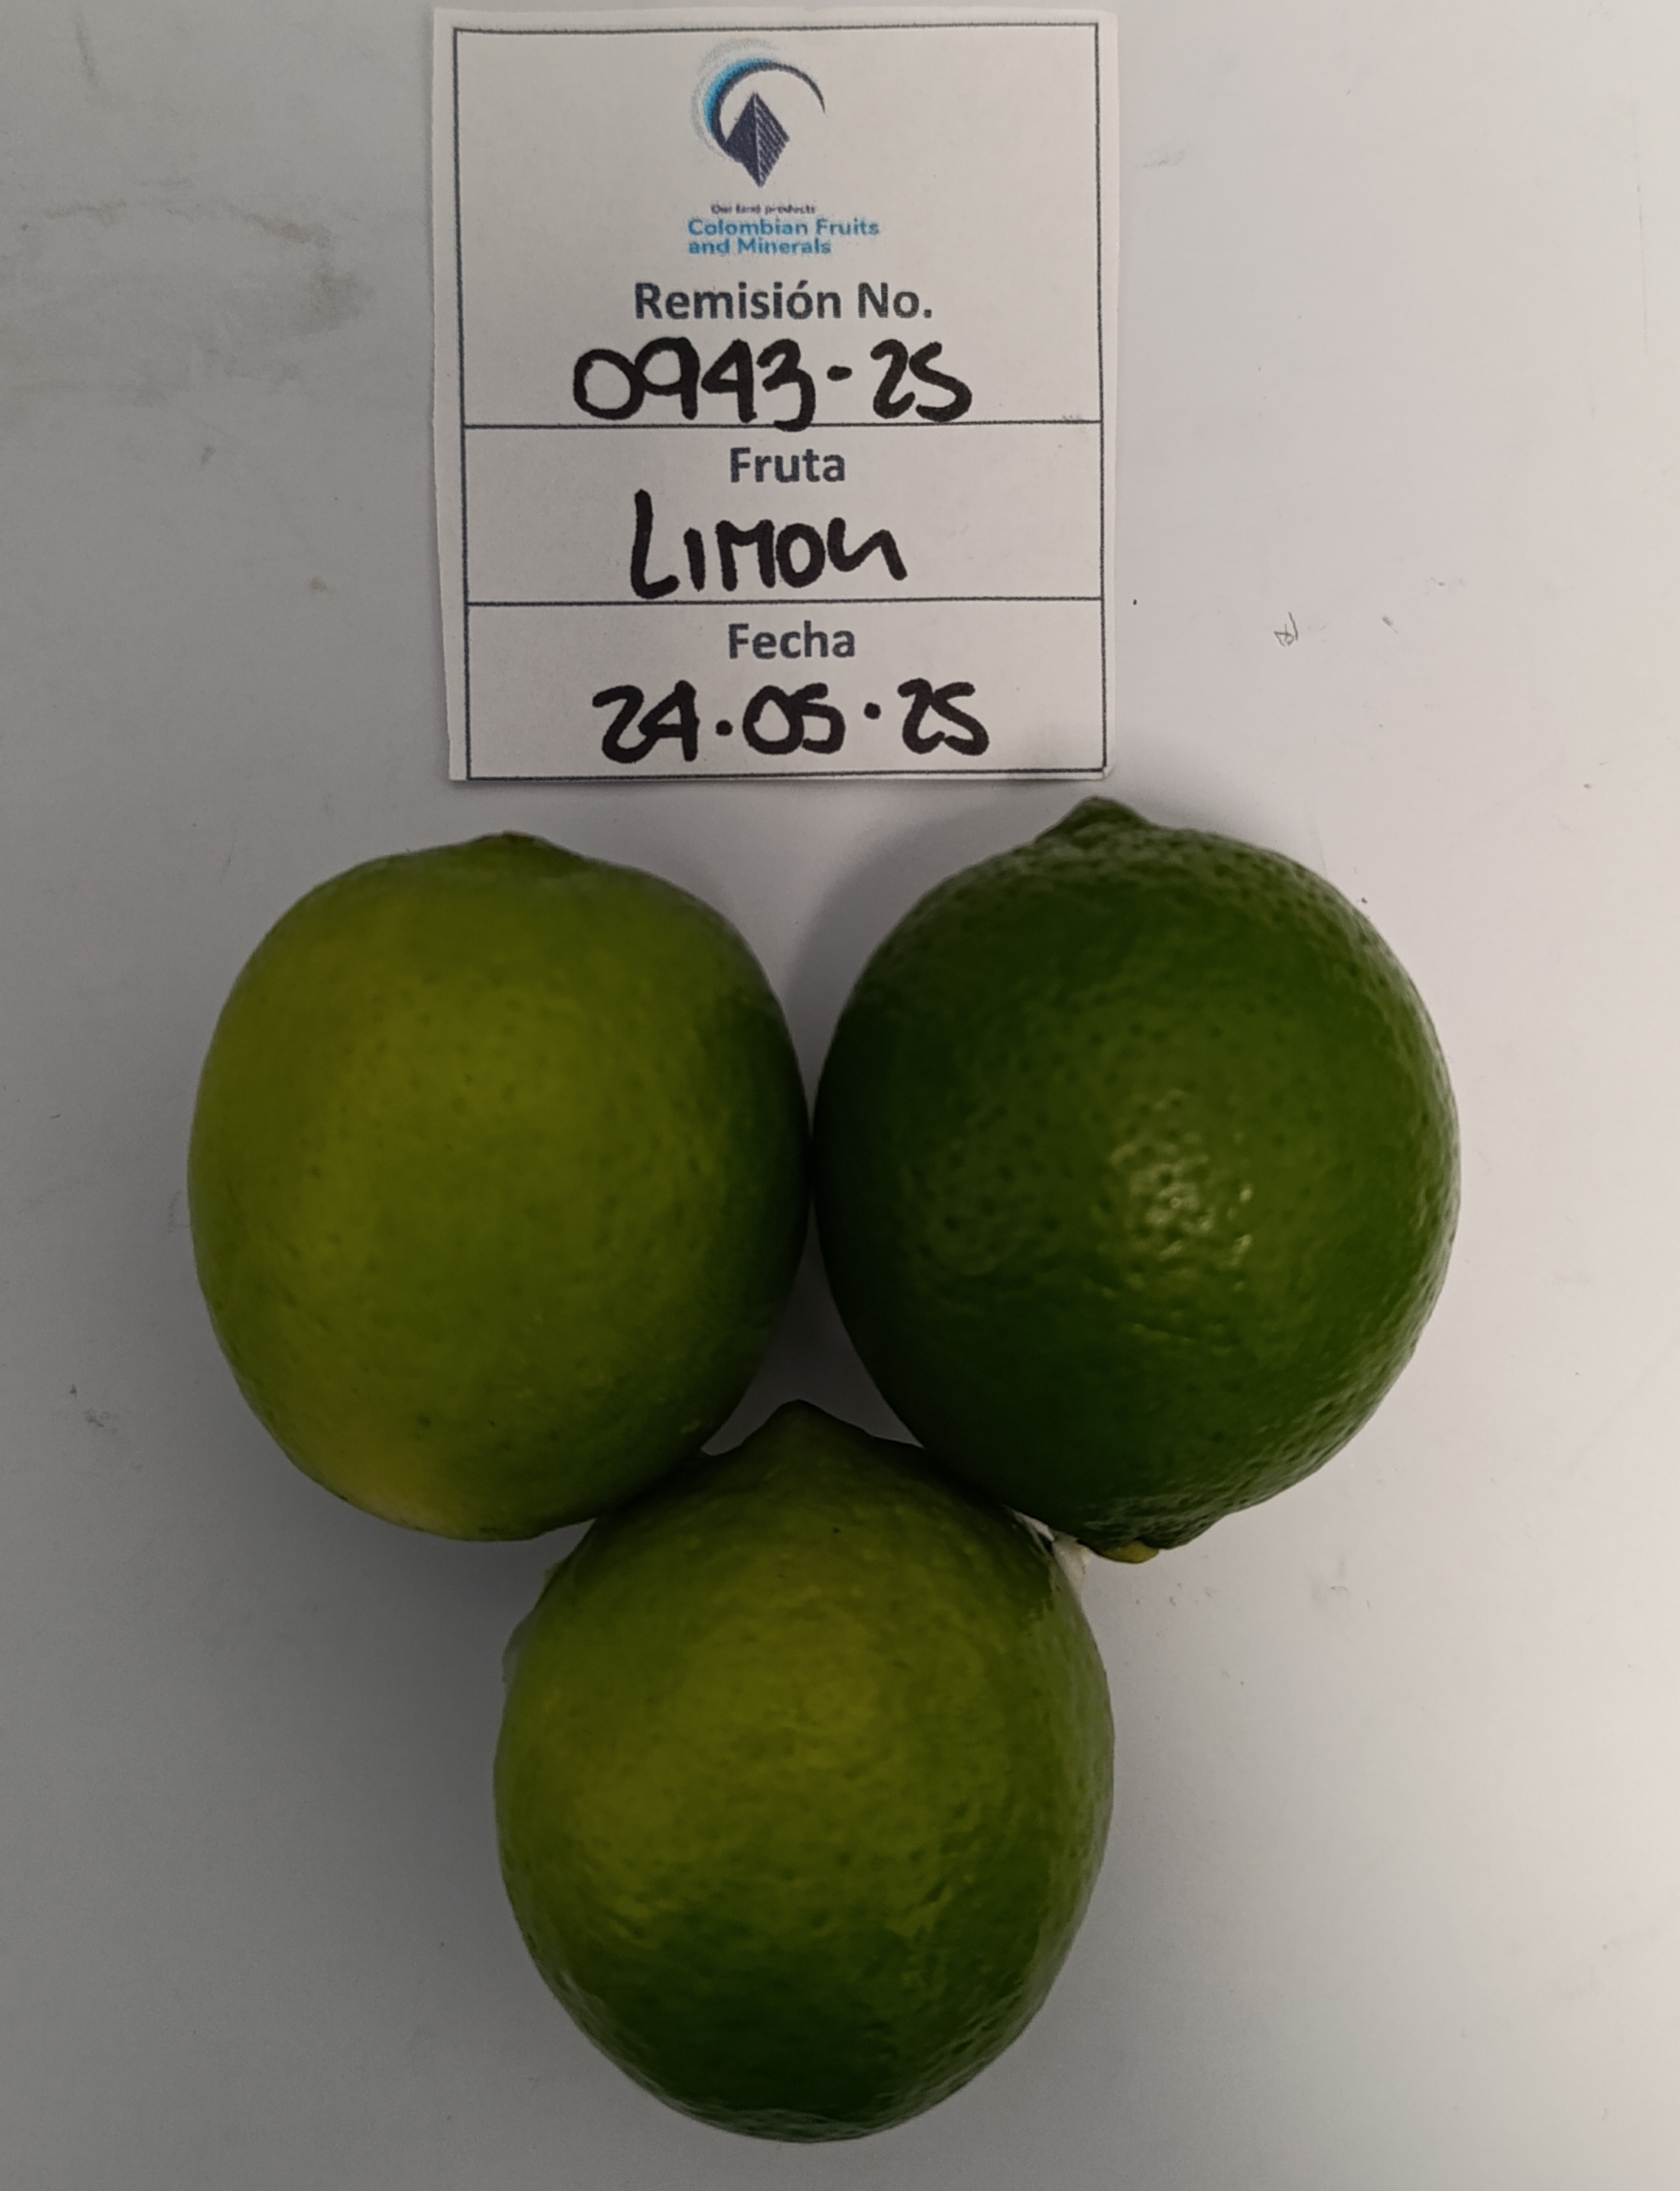 Our land products
Colombian Fruits
and Minerals
Remisión No.
0943-25
Fruta
LIMON
Fecha
24.05.25